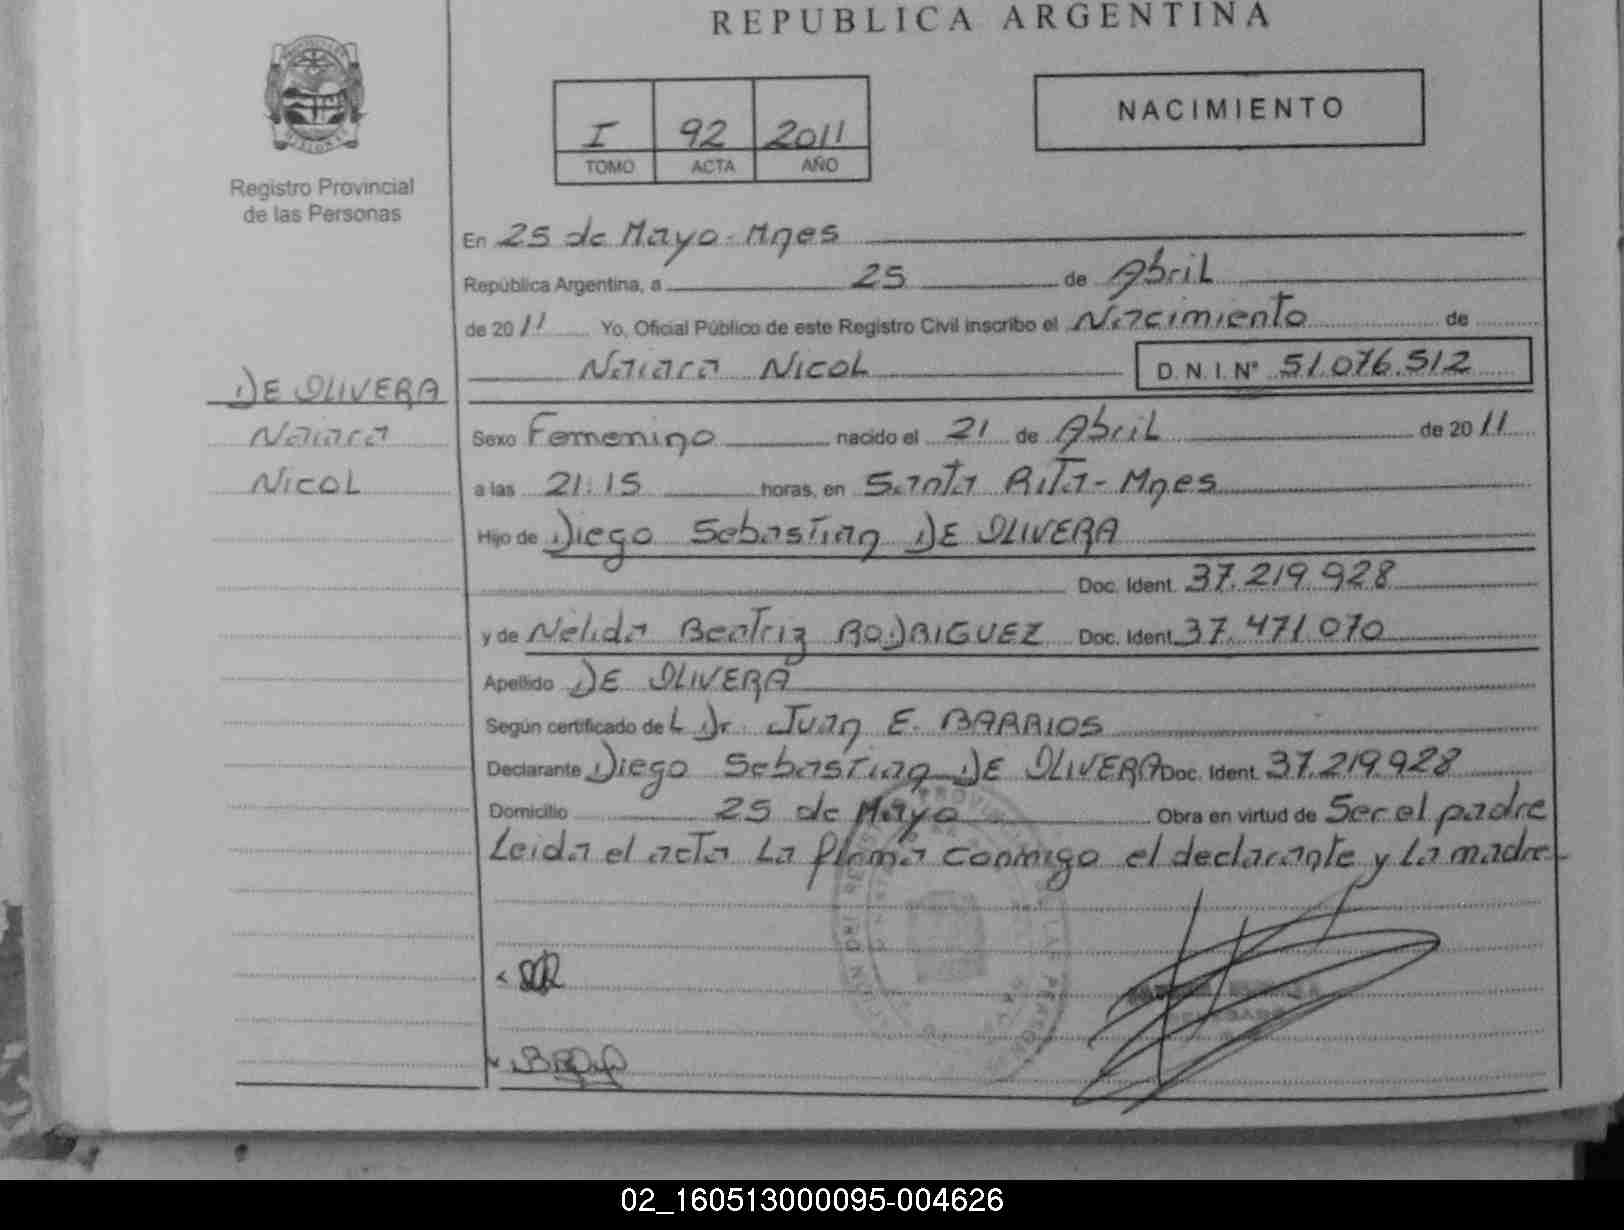 REPUBLICA ARGENTINA
I 92 2011
TOMO ACTA AÑO
NACIMIENTO
Registro Provincial
de las Personas
DE OLIVERA
Naiara
Nicol
En 25 de Mayo - Mnes
República Argentina, a 25 de Abril
de 2011 Yo, Oficial Público de este Registro Civil inscribo el Nacimiento de
Naiara Nicol D.N.I. Nº 51.076.512
Sexo Femenino nacido el 21 de Abril de 2011
a las 21:15 horas, en Santa Rita - Mnes
Hijo de Diego Sebastian DE OLIVERA
Doc. Ident. 37.219.928
y de Nélida Beatriz RODRIGUEZ Doc. Ident. 37.471.070
Apellido DE OLIVERA
Según certificado de L Dr. Juan E. BARRIOS
Declarante Diego Sebastian DE OLIVERA Doc. Ident. 37.219.928
Domicilio 25 de Mayo Obra en virtud de Ser el padre
Leida el acta La firma conmigo el declarante y La madre
02_160513000095-004626